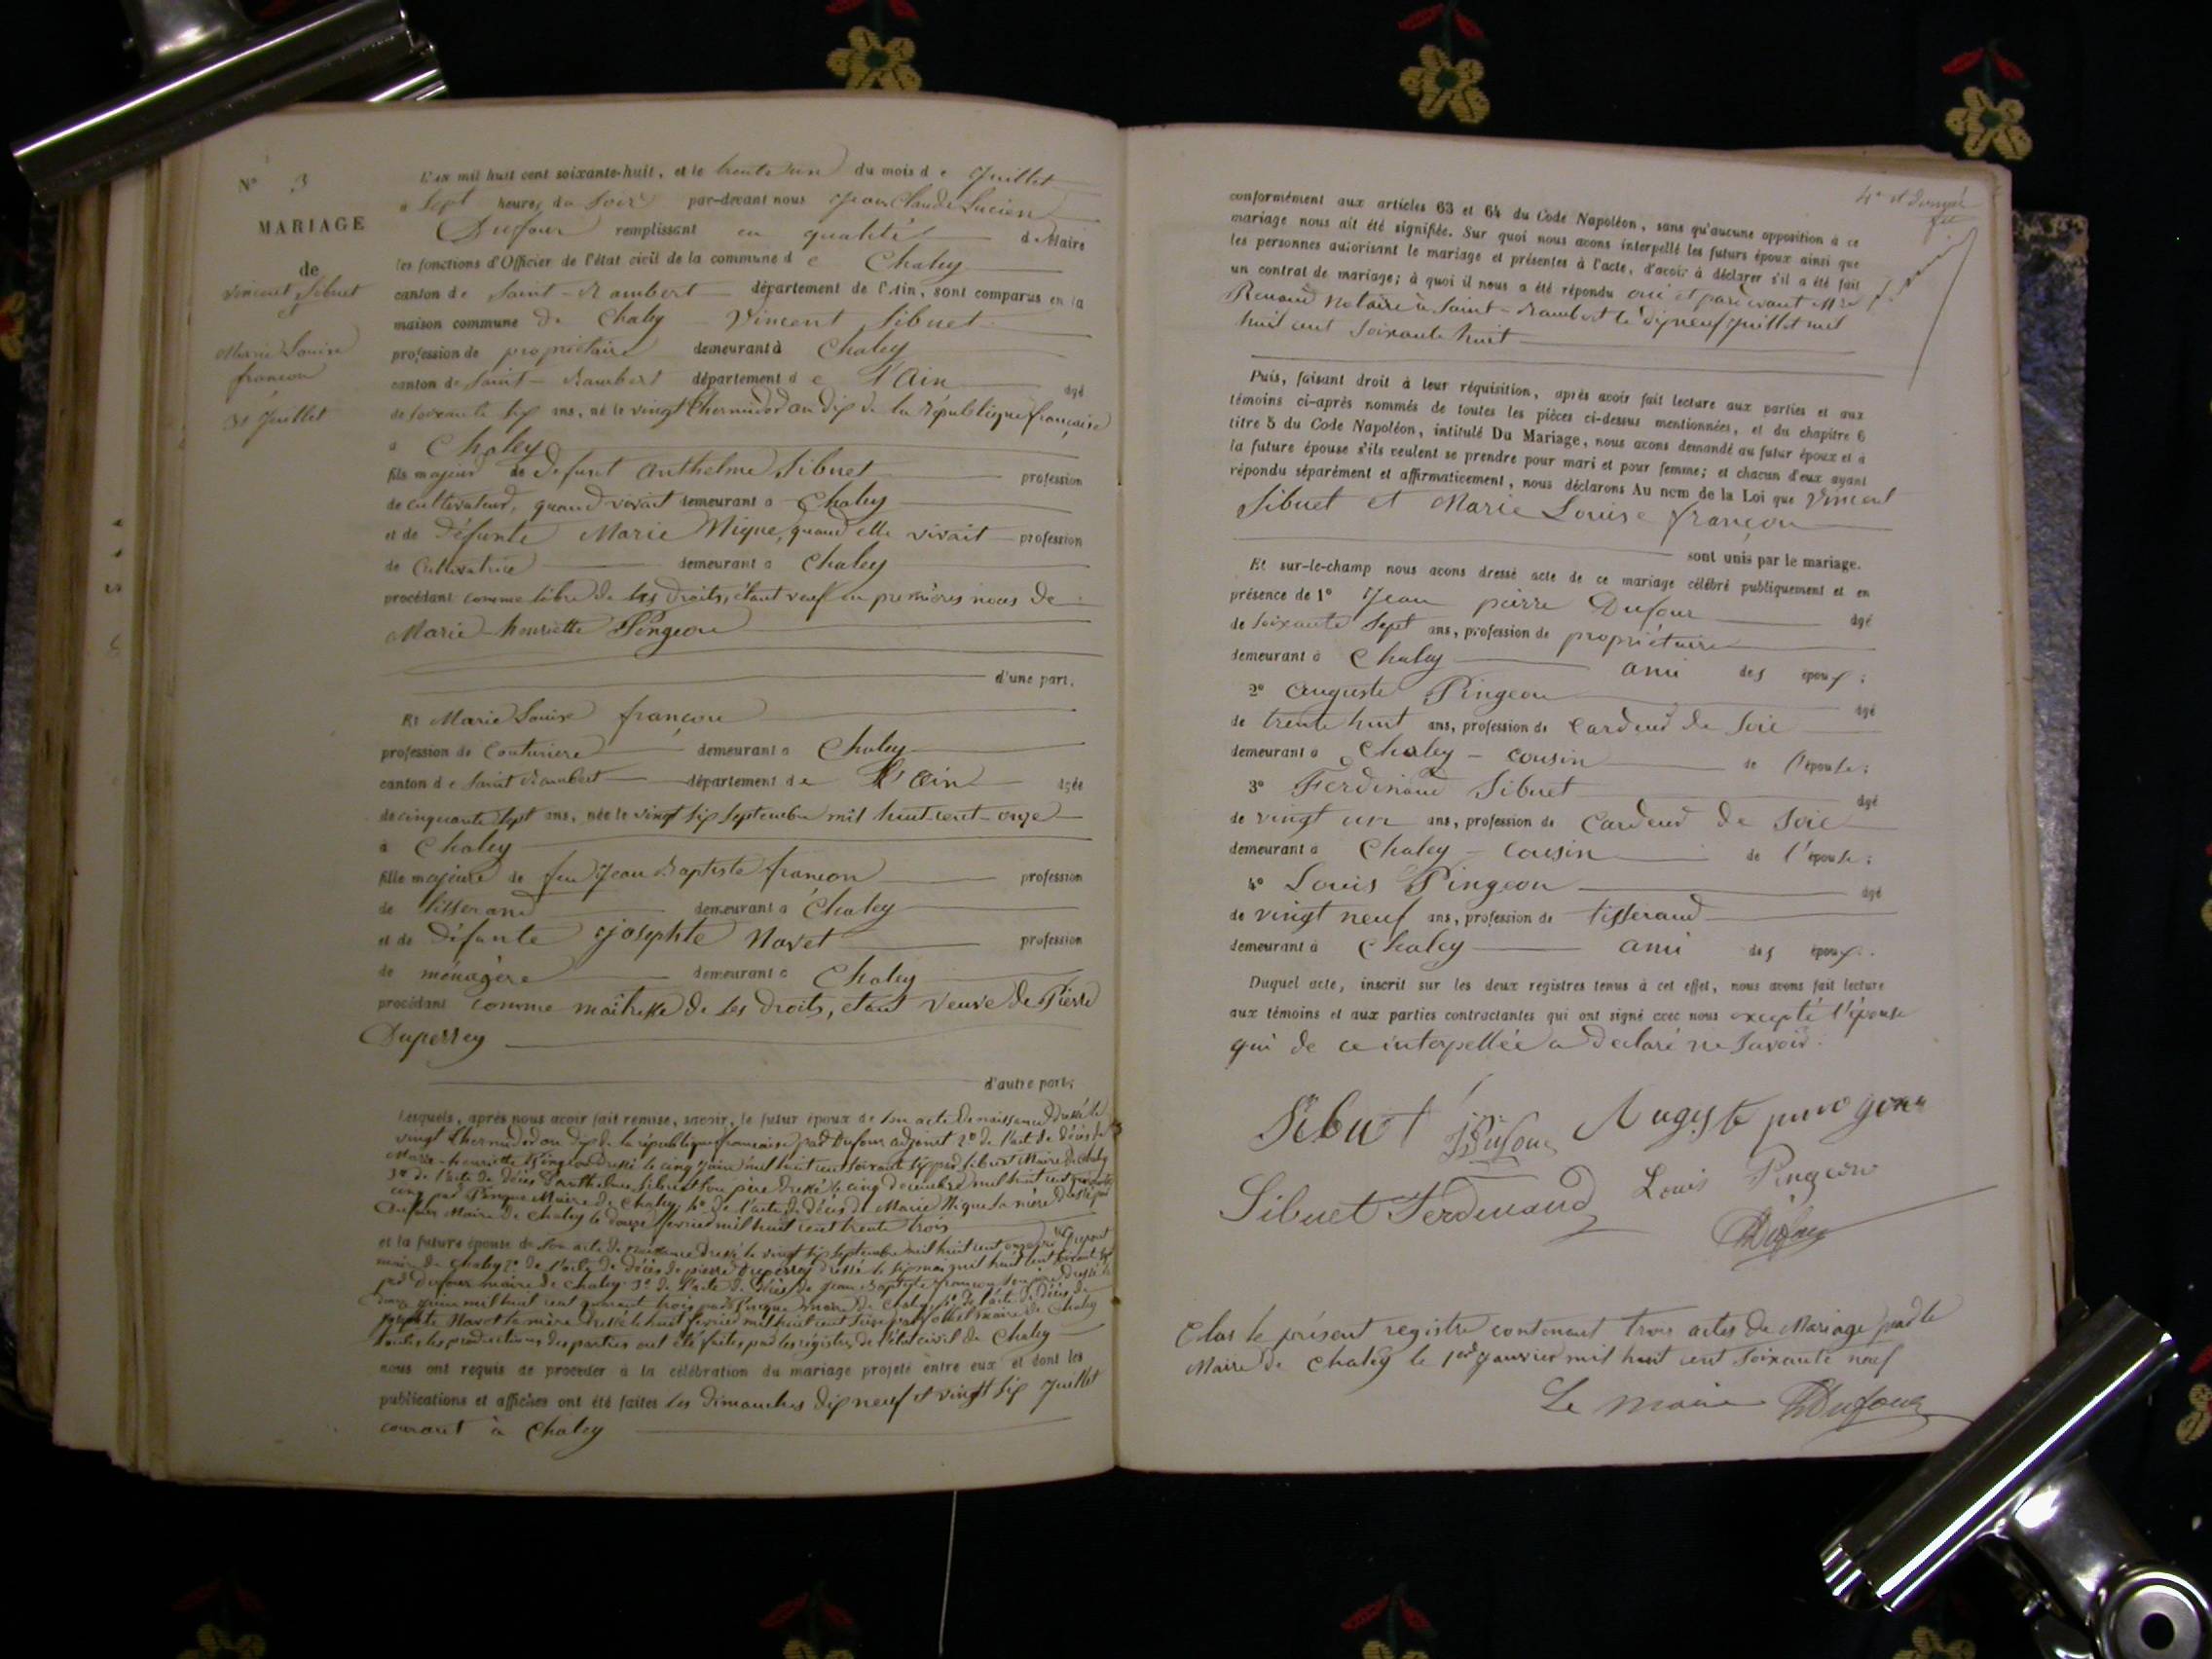 N° 3
MARIAGE
de
Vincent Sibuet
Marie Louise
françon
31 Juillet
L'an mil huit cent soixante-huit, et le trente un du mois de Juillet
à Sept heures du Soir par-devant nous Jean Claude Lucien
Dufour remplissant en qualité de Maire
les fonctions d'Officier de l'état civil de la commune de Chaley
canton de Saint-Rambert département de l'Ain, sont comparus en la
maison commune de Chaley Vincent Sibuet
profession de propriétaire demeurant à Chaley
canton de Saint-Rambert département de l'Ain âgé
de soixante six ans, né le vingt thermidor an dix de la république française
à Chaley
fils majeur de defunt Anthelme Sibuet profession
de cultivateur, quand vivait demeurant à Chaley
et de Défunte Marie Nique, quand elle vivait profession
de Cultivatrice demeurant à Chaley
procédant comme libre de ses droits, étant veuf en premières noces de
Marie henriette Pingeon
d'une part.
Et Marie Louise françon
profession de Couturière demeurant à Chaley
canton de Saint Rambert département de l'Ain âgée
de cinquante sept ans, née le vingt six Septembre mil huit cent onze
à Chaley
fille majeure de feu Jean Baptiste françon profession
de tisserand demeurant à Chaley
et de Défunte Josephte Navet profession
de ménagère demeurant à Chaley
procédant comme maîtresse de ses droits, étant veuve de Pierre
Duperrey
d'autre part;
Lesquels, après nous avoir fait remise, savoir, le futur époux de son acte de naissance dressé le
vingt thermidor an dix de la république française par Dufour adjoint 2° de l'acte de décès de
Marie-henriette Pingeon dressé le cinq mil huit cent soixante six par Sibuet Maire de Chaley
3° de l'acte de décès d'Anthelme Sibuet son père dressé le cinq décembre mil huit cent quarante
cinq par Maire de Chaley, 4° de l'acte de décès de Marie Nique sa mère dressé par
Dufour Maire de Chaley le douze février mil huit cent trente trois
et la future épouse de son acte de naissance dressé le vingt six septembre mil huit cent onze par
maire de Chaley 2° de l'acte de décès de pierre Duperrey dressé le six mai mil huit cent
par Dufour maire de Chaley 3° de l'acte de décès de Jean Baptiste françon son père dressé le
mil huit cent quarante trois par maire de Chaley, 4° de l'acte de décès de
Josephte Navet sa mère dressé le huit février mil huit cent maire de Chaley
toutes les productions des parties ont été faites par les régistres de l'état civil de Chaley
nous ont requis de procéder à la célébration du mariage projeté entre eux et dont les
publications et affiches ont été faites les dimanches dix neuf et vingt six Juillet
courant à Chaley
conformément aux articles 63 et 64 du Code Napoléon, sans qu'aucune opposition à ce
mariage nous ait été signifiée. Sur quoi nous avons interpellé les futurs époux ainsi que
les personnes autorisant le mariage et présentes à l'acte, d'avoir à déclarer s'il a été fait
un contrat de mariage; à quoi il nous a été répondu oui et par devant Me
Renaud Notaire à Saint-Rambert le dix neuf juillet mil
huit cent soixante huit
Puis, faisant droit à leur réquisition, après avoir fait lecture aux parties et aux
témoins ci-après nommés de toutes les pièces ci-dessus mentionnées, et du chapitre 6
titre 5 du Code Napoléon, intitulé Du Mariage, nous avons demandé au futur époux et à
la future épouse s'ils veulent se prendre pour mari et pour femme; et chacun d'eux ayant
répondu séparément et affirmativement, nous déclarons Au nom de la Loi que Vincent
Sibuet et Marie Louise françon
sont unis par le mariage.
Et sur-le-champ nous avons dressé acte de ce mariage célébré publiquement et en
présence de 1° Jean pierre Dufour âgé
de Soixante Sept ans, profession de propriétaire
demeurant à Chaley ami des époux;
2° Auguste Pingeon âgé
de trente huit ans, profession de Cardeur de Soie
demeurant à Chaley - cousin de l'épouse;
3° Ferdinand Sibuet âgé
de vingt un ans, profession de Cardeur de Soie
demeurant à Chaley - Cousin de l'épouse;
4° Louis Pingeon âgé
de vingt neuf ans, profession de tisserand
demeurant à Chaley ami des époux.
Duquel acte, inscrit sur les deux registres tenus à cet effet, nous avons fait lecture
aux témoins et aux parties contractantes qui ont signé avec nous excepté l'épouse
qui de ce interpellée a declaré ne savoir.
Sibuet Dufour
Sibuet Ferdinand Louis Pingeon
Dufour
Clos le présent registre contenant trois actes de Mariage par le
Maire de Chaley le 1er Janvier mil huit cent soixante neuf
Le maire Dufour